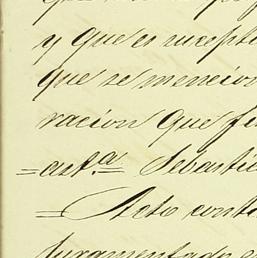 y que es recepto
que se mencion
racion que fu
=ast.ª= Sebastic
= Acto conti
juramentado e